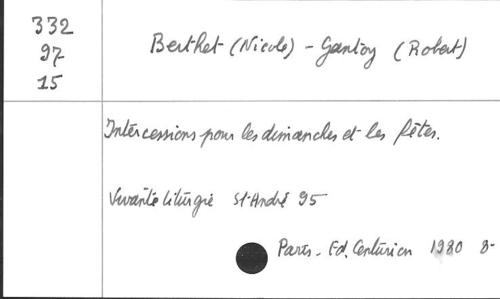 332
97
15
Berthet (Nicole) - Gantoy (Robert)
Intercessions pour les dimanches et les fêtes.
Vivante liturgie St-André 95
Paris. Ed. Centurion 1980 8-